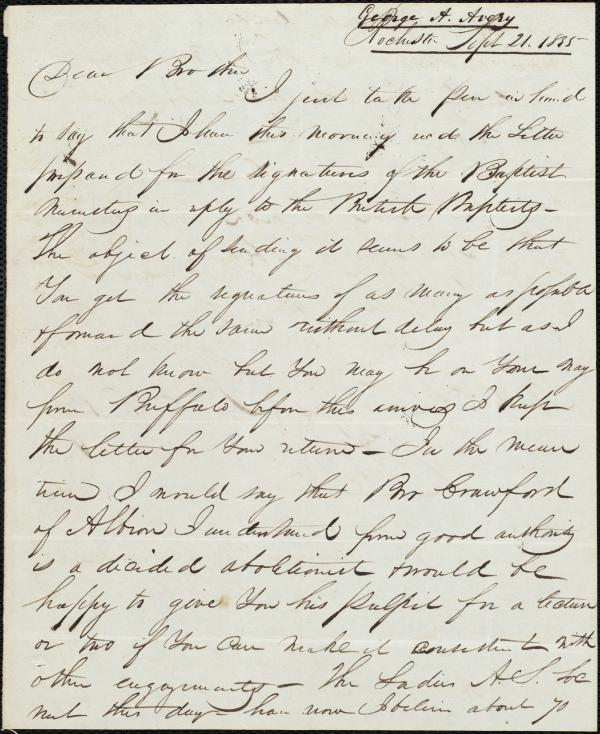 George A. Avery
Rochester Sept 21. 1835
Dear Brother
I just take pen in hand
to say that I have this morning recd the Letter
prepared for the signatures of the Baptist
Ministers in reply to the British Baptists -
The object of sending it seems to be that
You get the signatures of as many as possible
& forward the same without delay but as I
do not know but You may be on Your way
from Buffalo before this arrives I keep
the letter for Your return - In the mean
time I would say that Bro Crawford
of Albion I understand from good authority
is a decided abolitionist & would be
happy to give You his pulpit for a lecture
or two if You can make it consistent with
other engagements - The Ladies A. S. Soc
met this day - have now I believe about 70